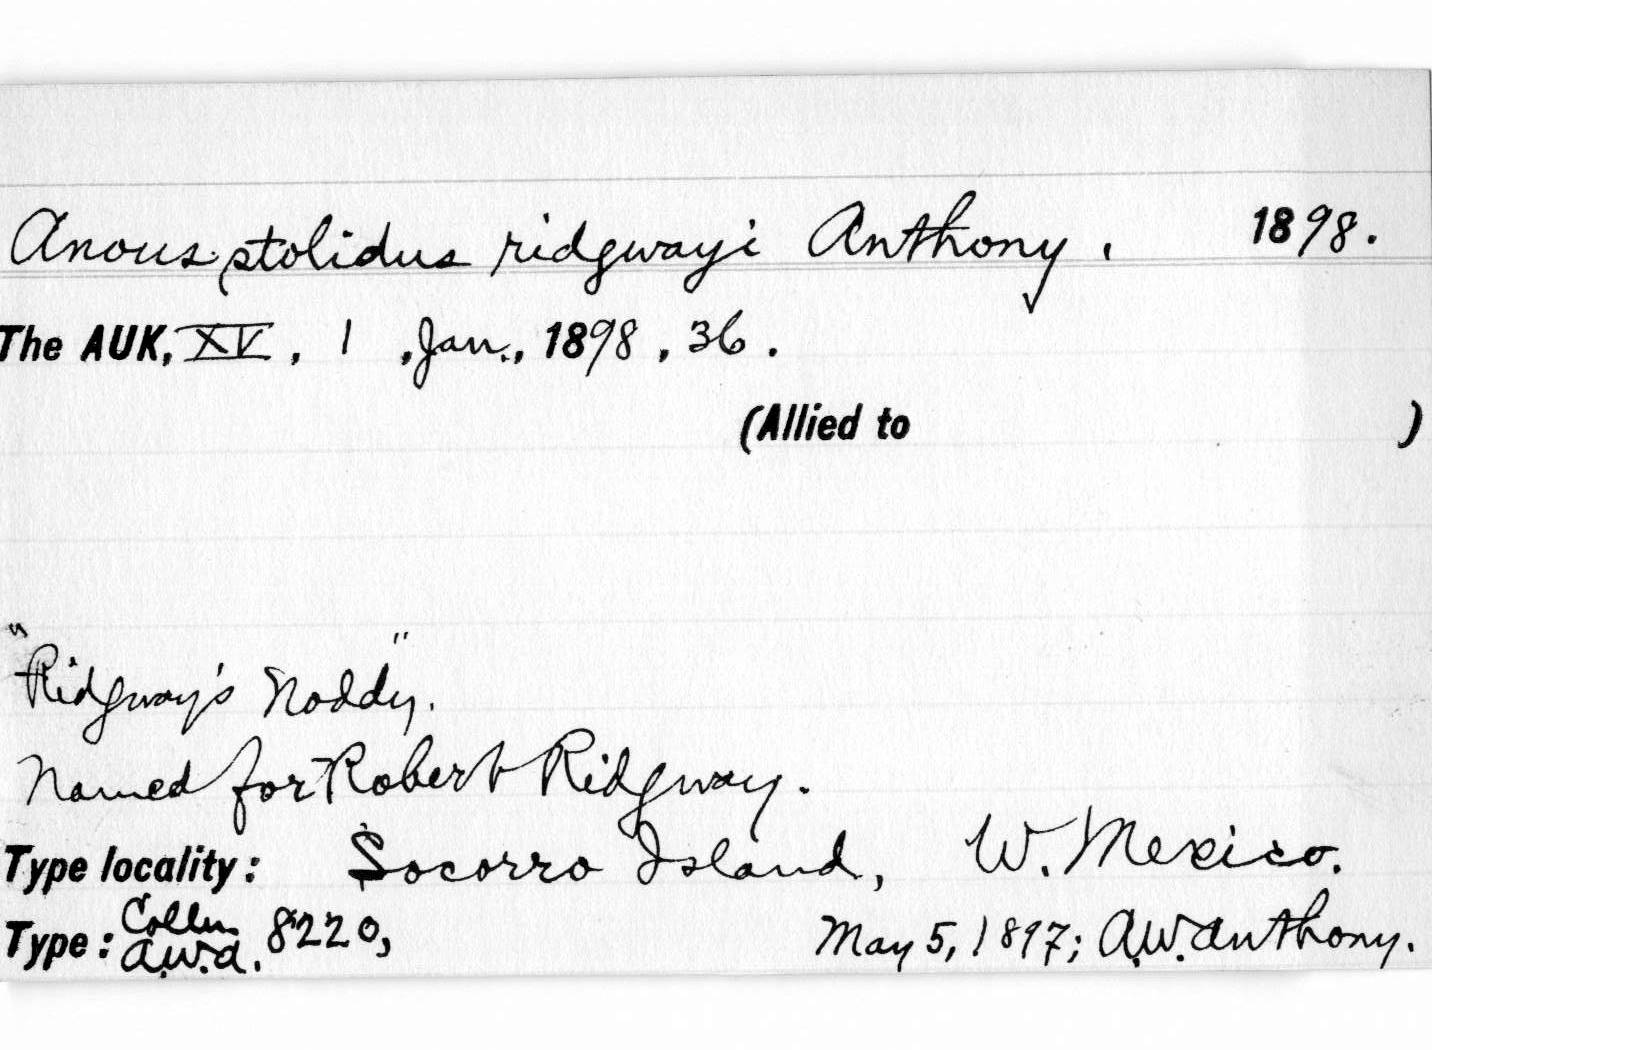 Anous stolidus ridgwayi Anthony. 1898.
The AUK, XV, 1, Jan., 1898, 36.
(Allied to )
"Ridgway's Noddy".
Named for Robert Ridgway.
Type locality: Socorro Island, W. Mexico.
Type: Colln. A.W.A. 8220, May 5, 1897; A.W. Anthony.